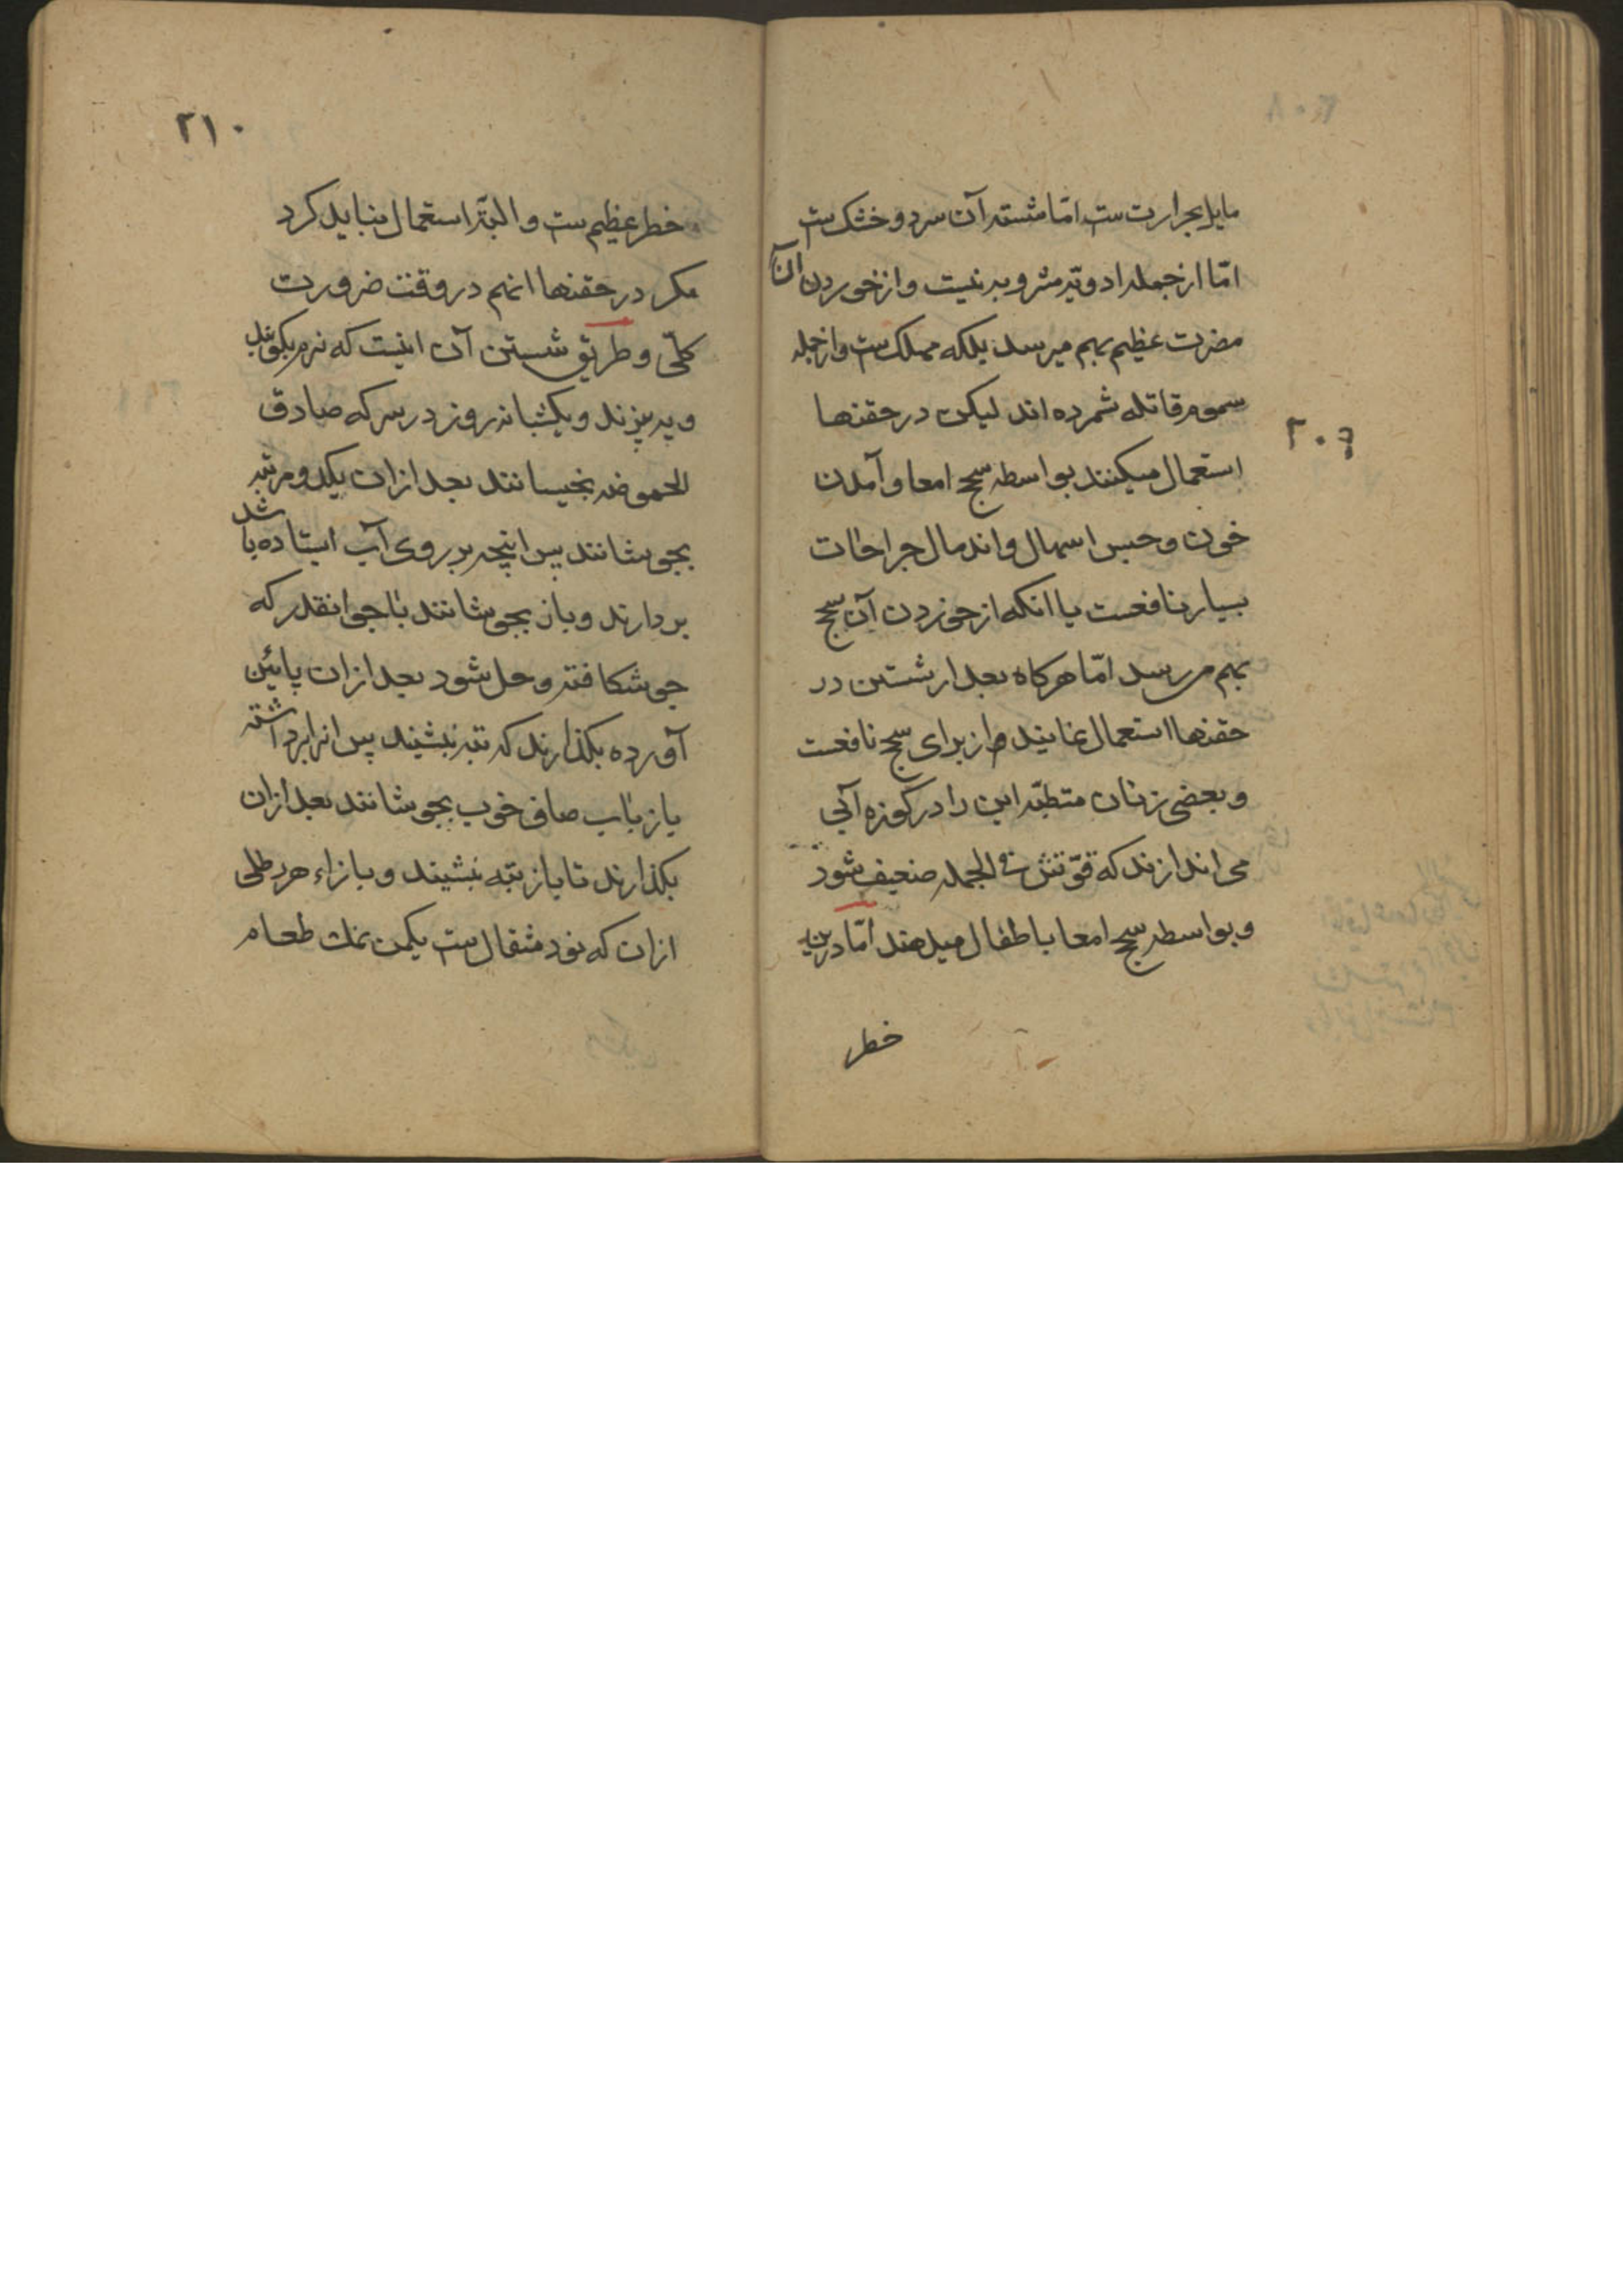 مایل بحرارت ست امّا شسته آن سرد و خشک ست
امّا از جمله ادویّه مشروبه نیست و از خوردن آن
مضرت عظیم بهم میرسد بلکه مهلک ست و از جمله
سموم قاتله شمرده اند لیکن در حقنها
استعمال میکنند بواسطه سحج امعا و آمدن
خون و حبس اسهال و اندمال جراحات
بسیار نافعست با انکه از خوردن آن سحج
بهم میرسد امّا هرکاه بعد از شستن در
حقنها استعمال نمایند از برای سحج نافعست
و بعضی زنان متطبّه این را در کوزه آبی
می اندازند که قوّتش فی الجمله ضعیف شود
و بواسطه سحج امعا باطفال میدهند امّا درین
خطر
۲۰۹
۲۱۰
خطر عظیم ست و البتّه استعمال نباید کرد
مکر در حقنها انهم در وقت ضرورت
کلّی و طریق شستن آن اینست که نرم بکوبند
و به بیزند و یکشبانه روز در سرکه صادق
الحموضه بخیسانند بعد ازان یکدو مرتبه
بجوشانند پس اینچه بر روی آب ایستاده باشد
بردارند و باز بجوشانند با جو انقدر که
جو شکافته و حل شود بعد ازان پائین
آورده بکذارند که ته نشیند پس انرا برداشته
باز باب صافی خوب بجوشانند بعد ازان
بکذارند تا باز بته نشیند و بازاء هر رطلی
ازان که نود مثقال ست یکمن نمک طعام